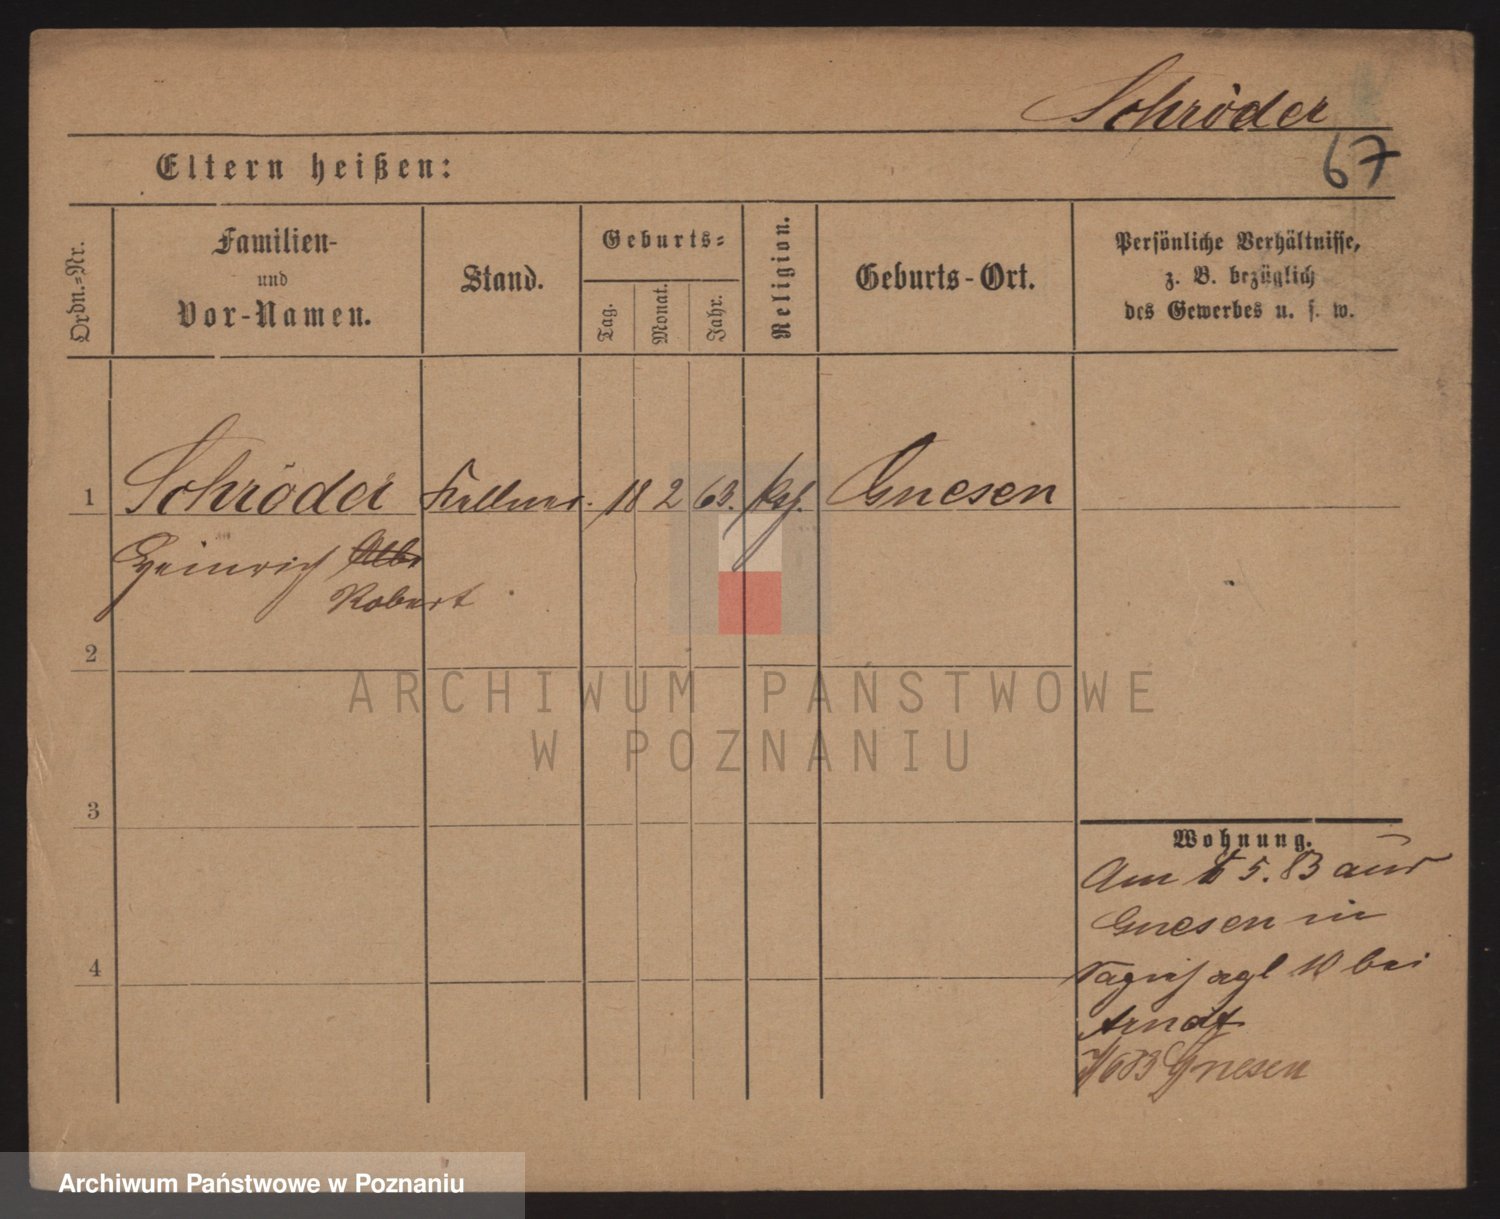 Schröder
67
Eltern heißen:
Ordn.-Nr.
Familien-
und
Vor-Namen.
Stand.
Geburts-
Tag.
Monat.
Jahr.
Religion.
Geburts-Ort.
Persönliche Verhältnisse,
z. B. bezüglich
des Gewerbes u. s. w.
1 Schröder Kellner 18 2 63. Gnesen
Heinrich
Robert
2
3
4
Wohnung.
Am 5. 83 aus
Gnesen in
10 bei
Arndt
83 Gnesen
ARCHIWUM PAŃSTWOWE
W POZNANIU
Archiwum Państwowe w Poznaniu